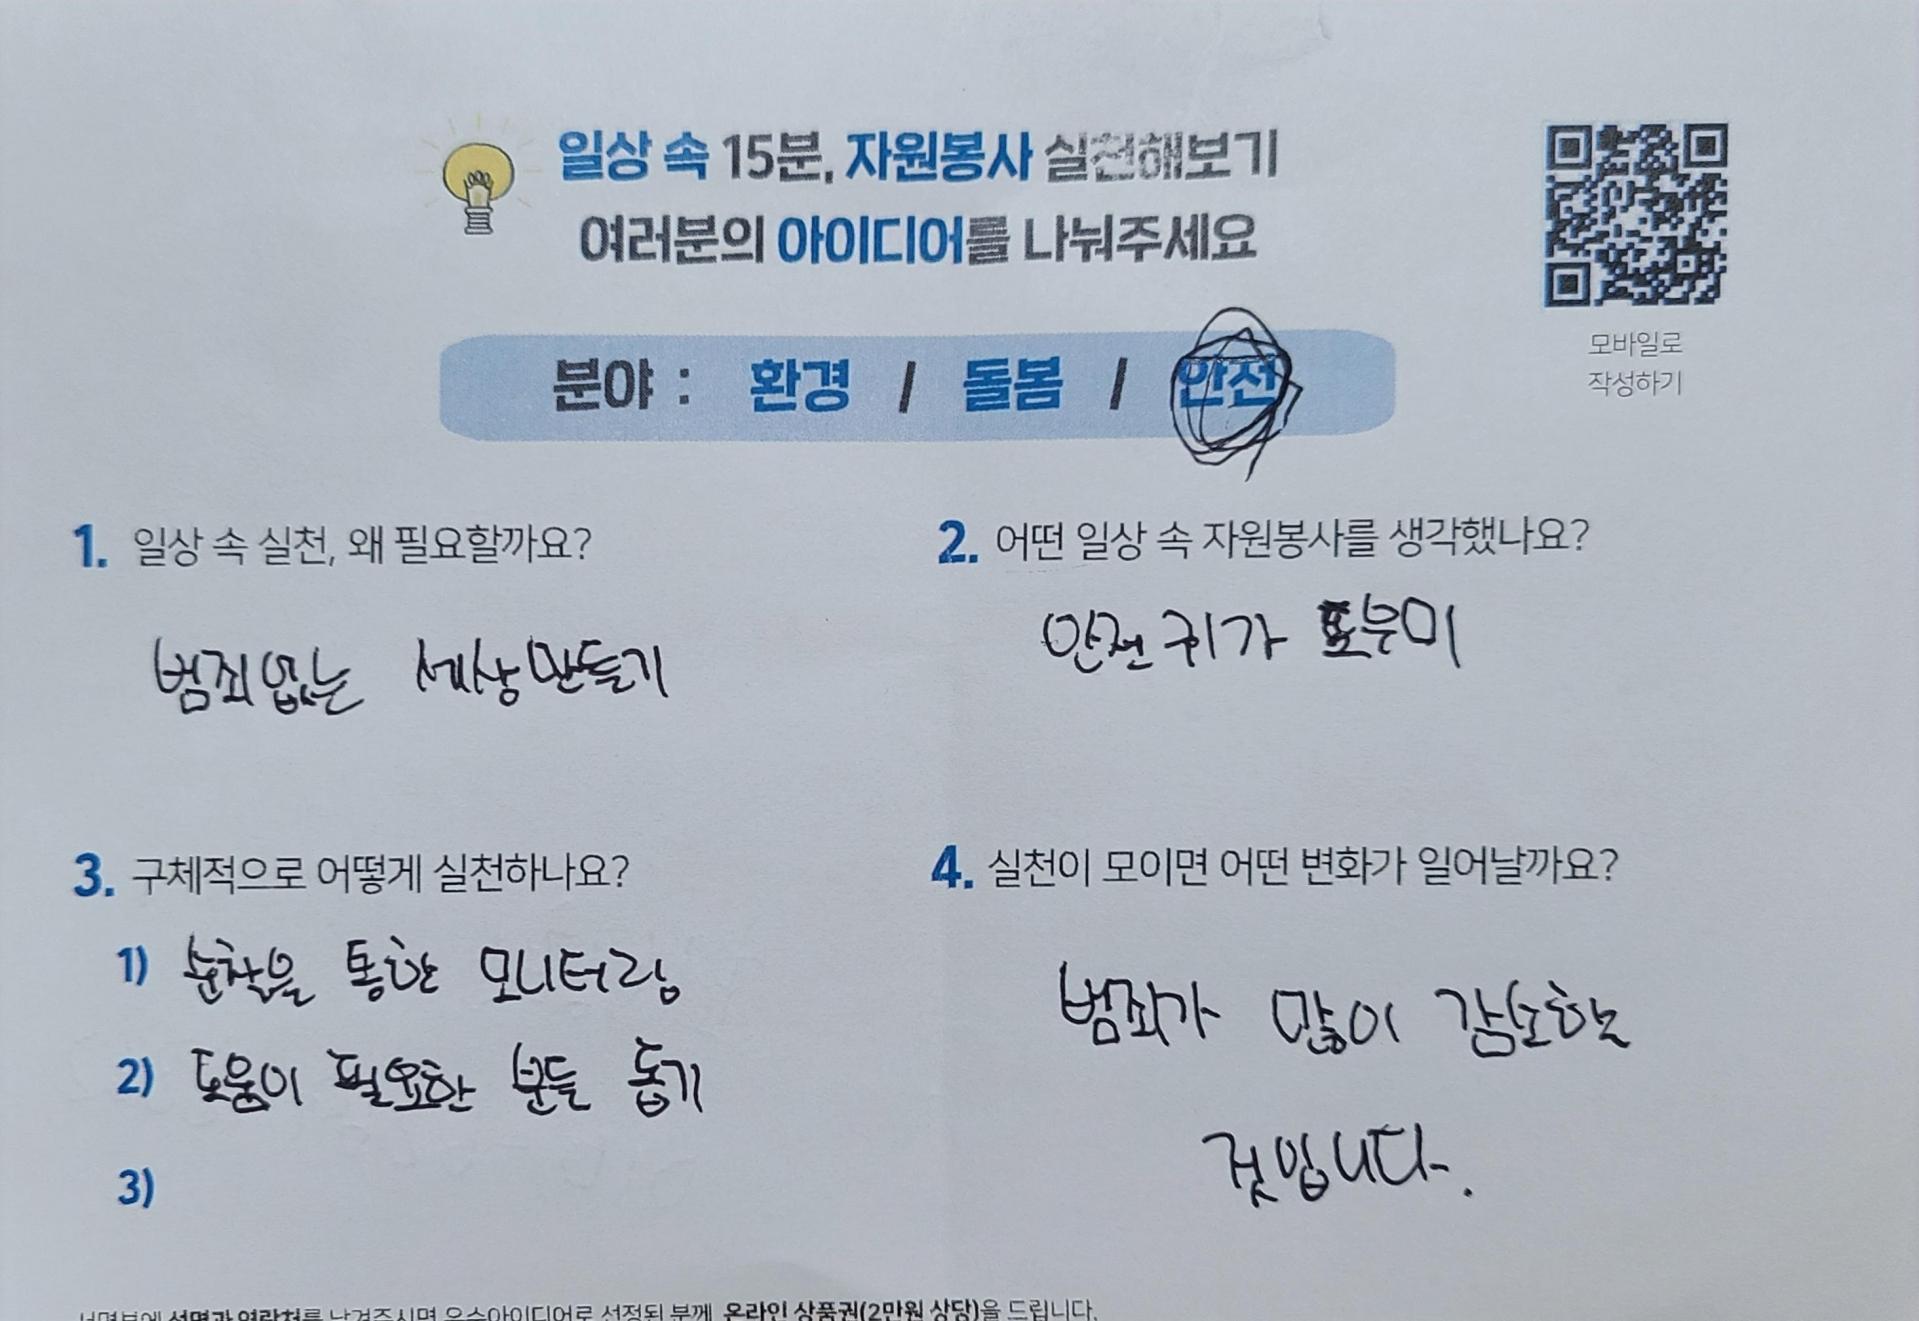 일상 속 15분, 자원봉사 실천해보기
여러분의 아이디어를 나눠주세요
모바일로
작성하기
분야 : 환경 / 돌봄 / 안전
1. 일상 속 실천, 왜 필요할까요?
범죄없는 세상만들기
2. 어떤 일상 속 자원봉사를 생각했나요?
안전귀가 도우미
3. 구체적으로 어떻게 실천하나요?
1) 순찰을 통한 모니터링
2) 도움이 필요한 분들 돕기
3)
4. 실천이 모이면 어떤 변화가 일어날까요?
범죄가 많이 감소할
것입니다.
서명부에 성명과 연락처를 남겨주시면 우수아이디어로 선정된 분께 온라인 상품권(2만원 상당)을 드립니다.